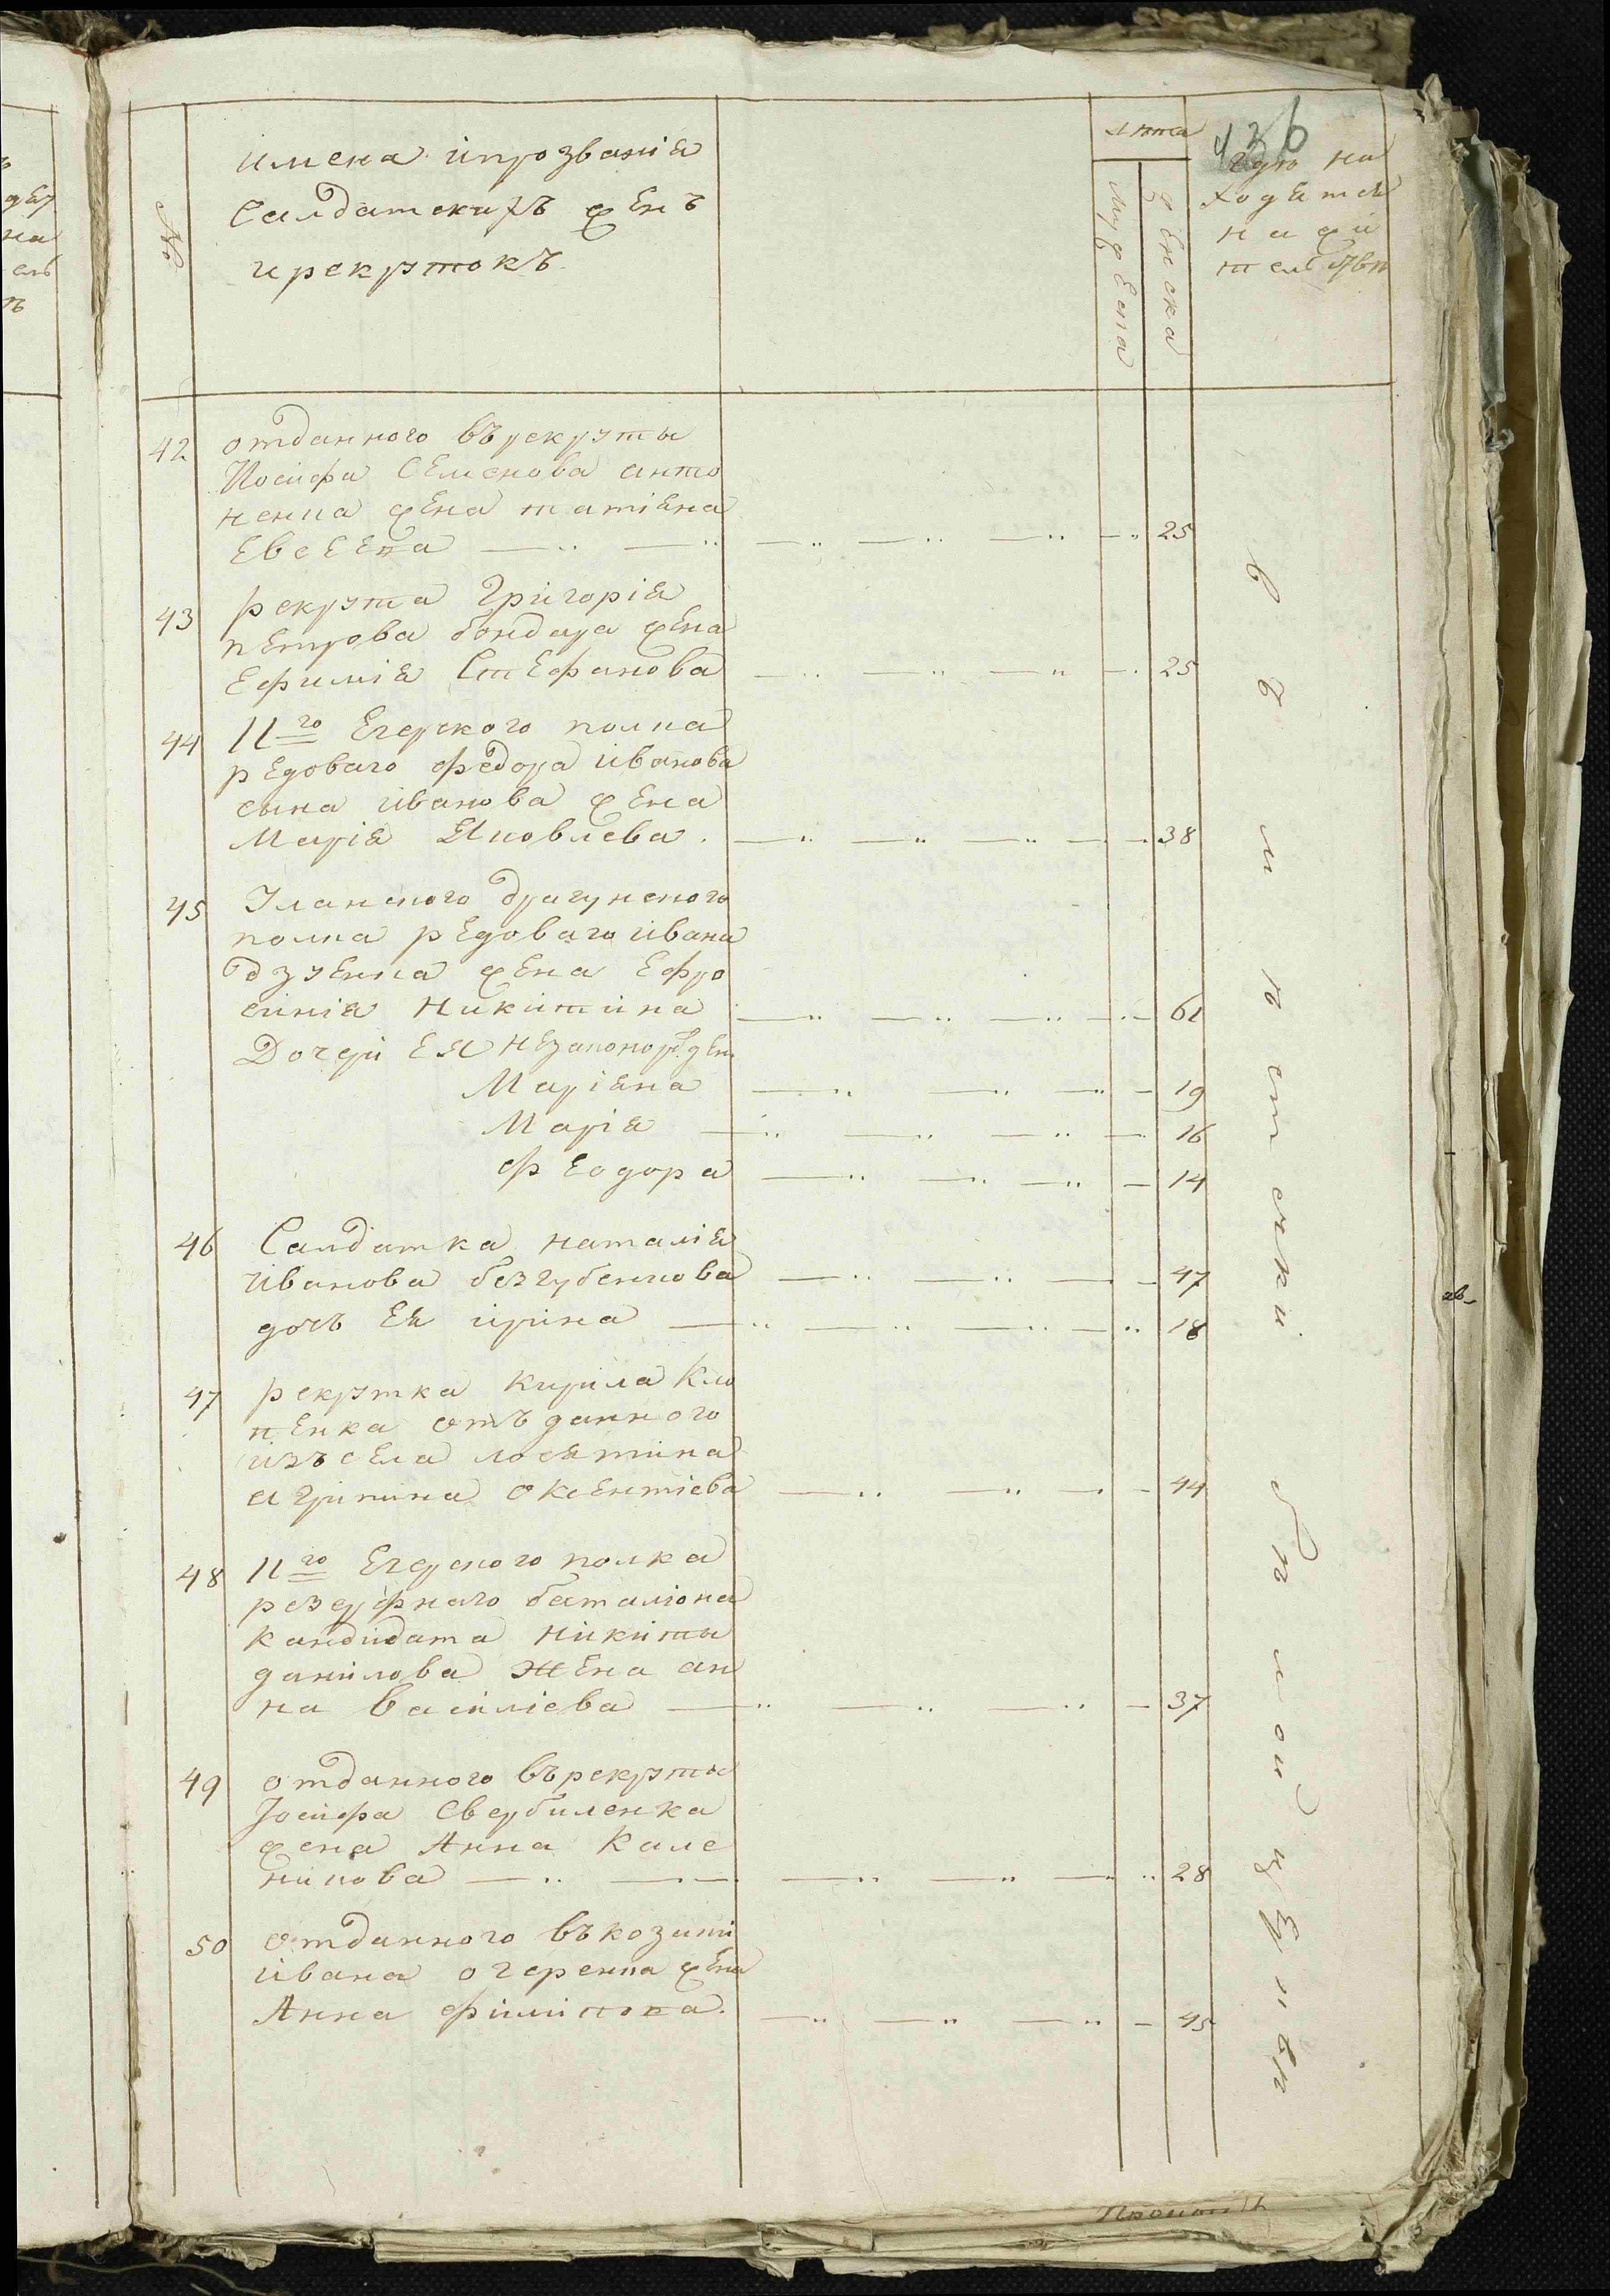 №
имена ипрозваніѧ
Салдатскихъ женъ
ирекрутокъ
лѣта
мужеска
женска
436
Гдѣ на
ходѧтсѧ
нажи
телствѣ
42
отданного врекруты
Иосифа Семенова анто
ненка жена татіѧна
Евсеева
25
43
рекрута Григоріѧ
петрова бондара жена
Ефиміѧ Стефанова
25
44
11го Егерского полка
рѧдоваго федора иванова
сына иванова жена
Маріѧ Яковлева
38
45
Уланского драгунского
полка рѧдоваго ивана
жена Ефро
синіѧ Никитина
61
Дочери ЕЯ незаконорожден
Маріѧна
19
Маріѧ
16
феодора
14
46
Салдатка наталіѧ
иванова безгубенкова
47
дочь Еѧ ирина
18
47
рекрутка кирила Кло
пенка отъданного
изъ села лосѧтина
агрипина оксентіева
44
48
11го Егерского полка
резерфнаго баталіона
кандидата никиты
данилова жена ан
на василіева
37
49
отданного върекруты
Іосифа Свербиленка
жена Анна Кале
никова
28
50
отданного въкозаки
ивана очеренка жена
Анна филипова
45
въ местечки бѣлой церквѣ